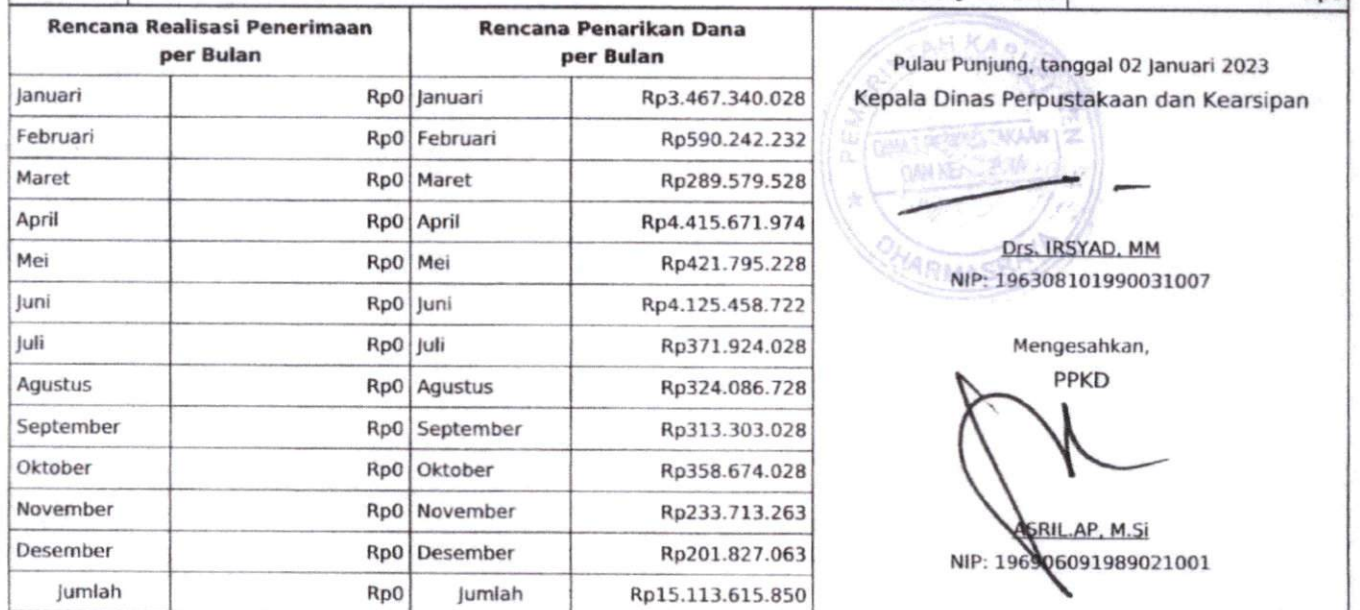 Rencana Realisasi Penerimaan
per Bulan
Rencana Penarikan Dana
per Bulan
Januari Rp0 Januari Rp3.467.340.028
Februari Rp0 Februari Rp590.242.232
Maret Rp0 Maret Rp289.579.528
April Rp0 April Rp4.415.671.974
Mei Rp0 Mei Rp421.795.228
Juni Rp0 Juni Rp4.125.458.722
Juli Rp0 Juli Rp371.924.028
Agustus Rp0 Agustus Rp324.086.728
September Rp0 September Rp313.303.028
Oktober Rp0 Oktober Rp358.674.028
November Rp0 November Rp233.713.263
Desember Rp0 Desember Rp201.827.063
Jumlah Rp0 Jumlah Rp15.113.615.850
Pulau Punjung, tanggal 02 Januari 2023
Kepala Dinas Perpustakaan dan Kearsipan
DHARMASRAYA
Drs. IRSYAD, MM
NIP: 196308101990031007
Mengesahkan,
PPKD
ASRIL.AP, M.Si
NIP: 196906091989021001